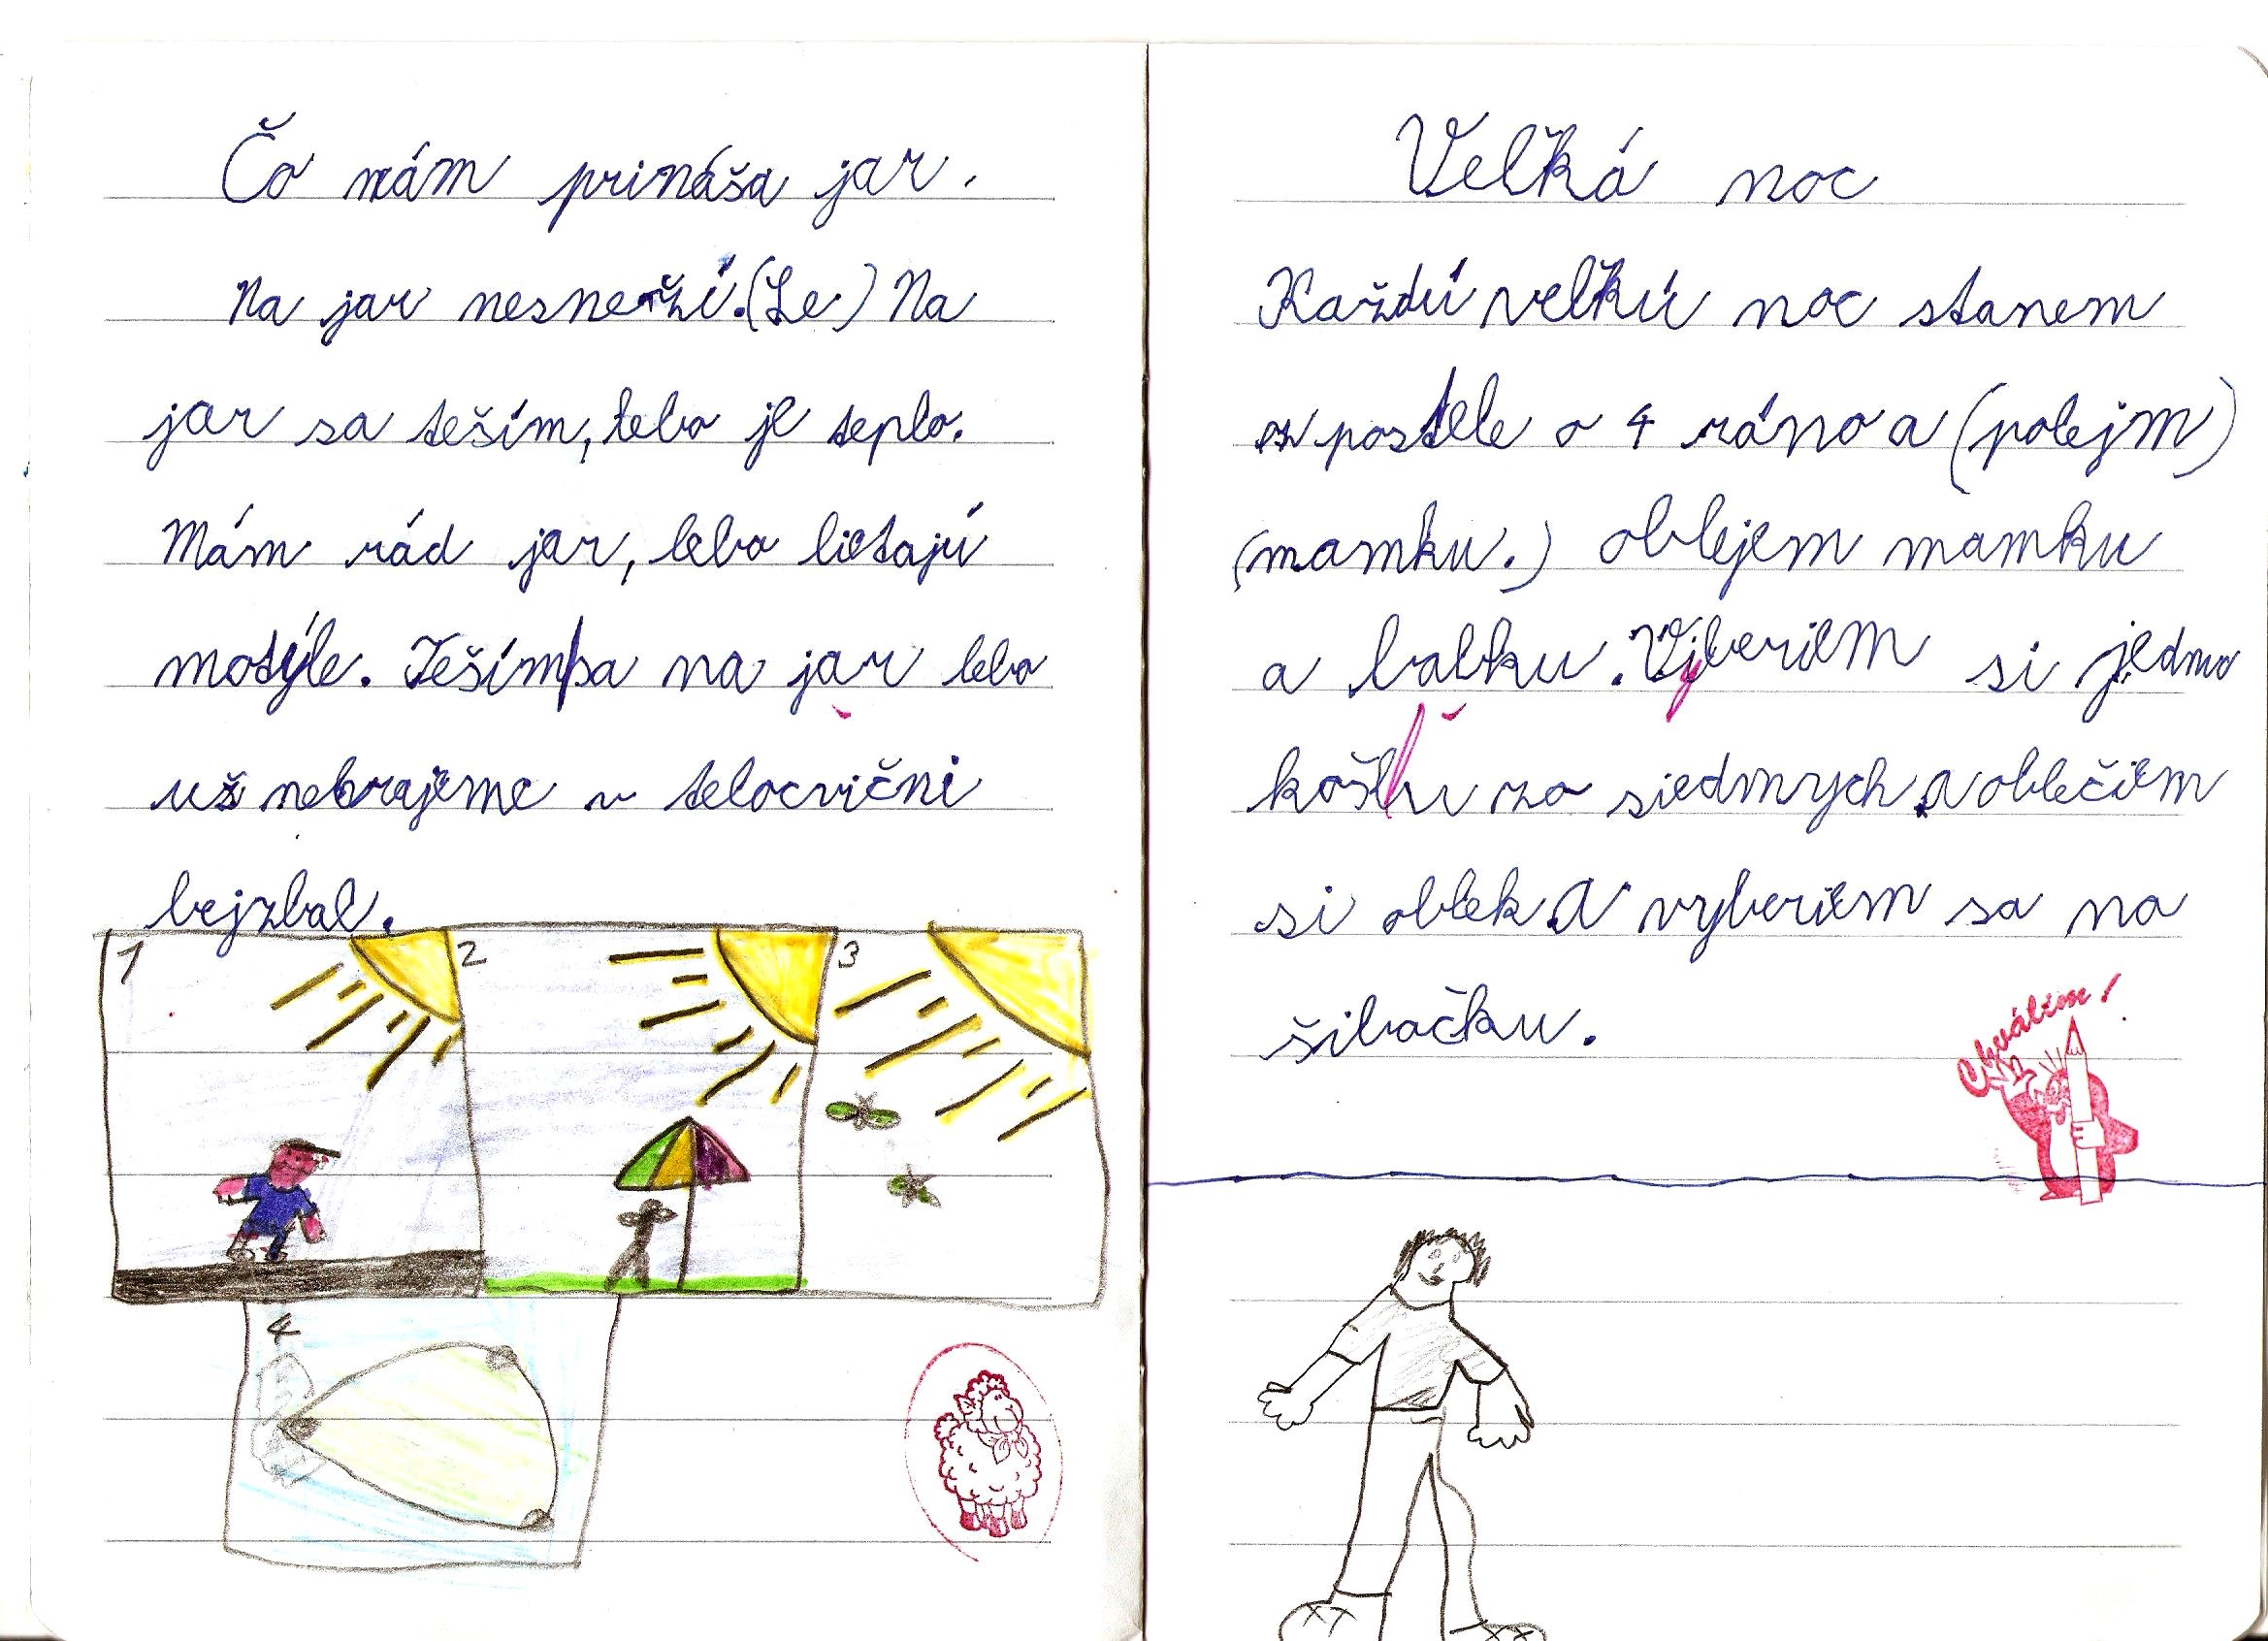 Čo nám prináša jar.
Na jar nesnežží.(Le) Na
jar sa teším, lebo je teplo.
Mám rád jar, lebo lietajú
motýle. Teším sa na jar lebo
už nehrajeme v telocvični
bejzbal.
1
2
3
4
Veľká noc
Každú veľkú noc stanem
z postele o 4 ráno a (polejm)
(mamku.) oblejem mamku
a babku. Vyberiem si jednu
košľu zo siedmych. A oblečiem
si oblek. A vyberiem sa na
šibačku.
Chválim!